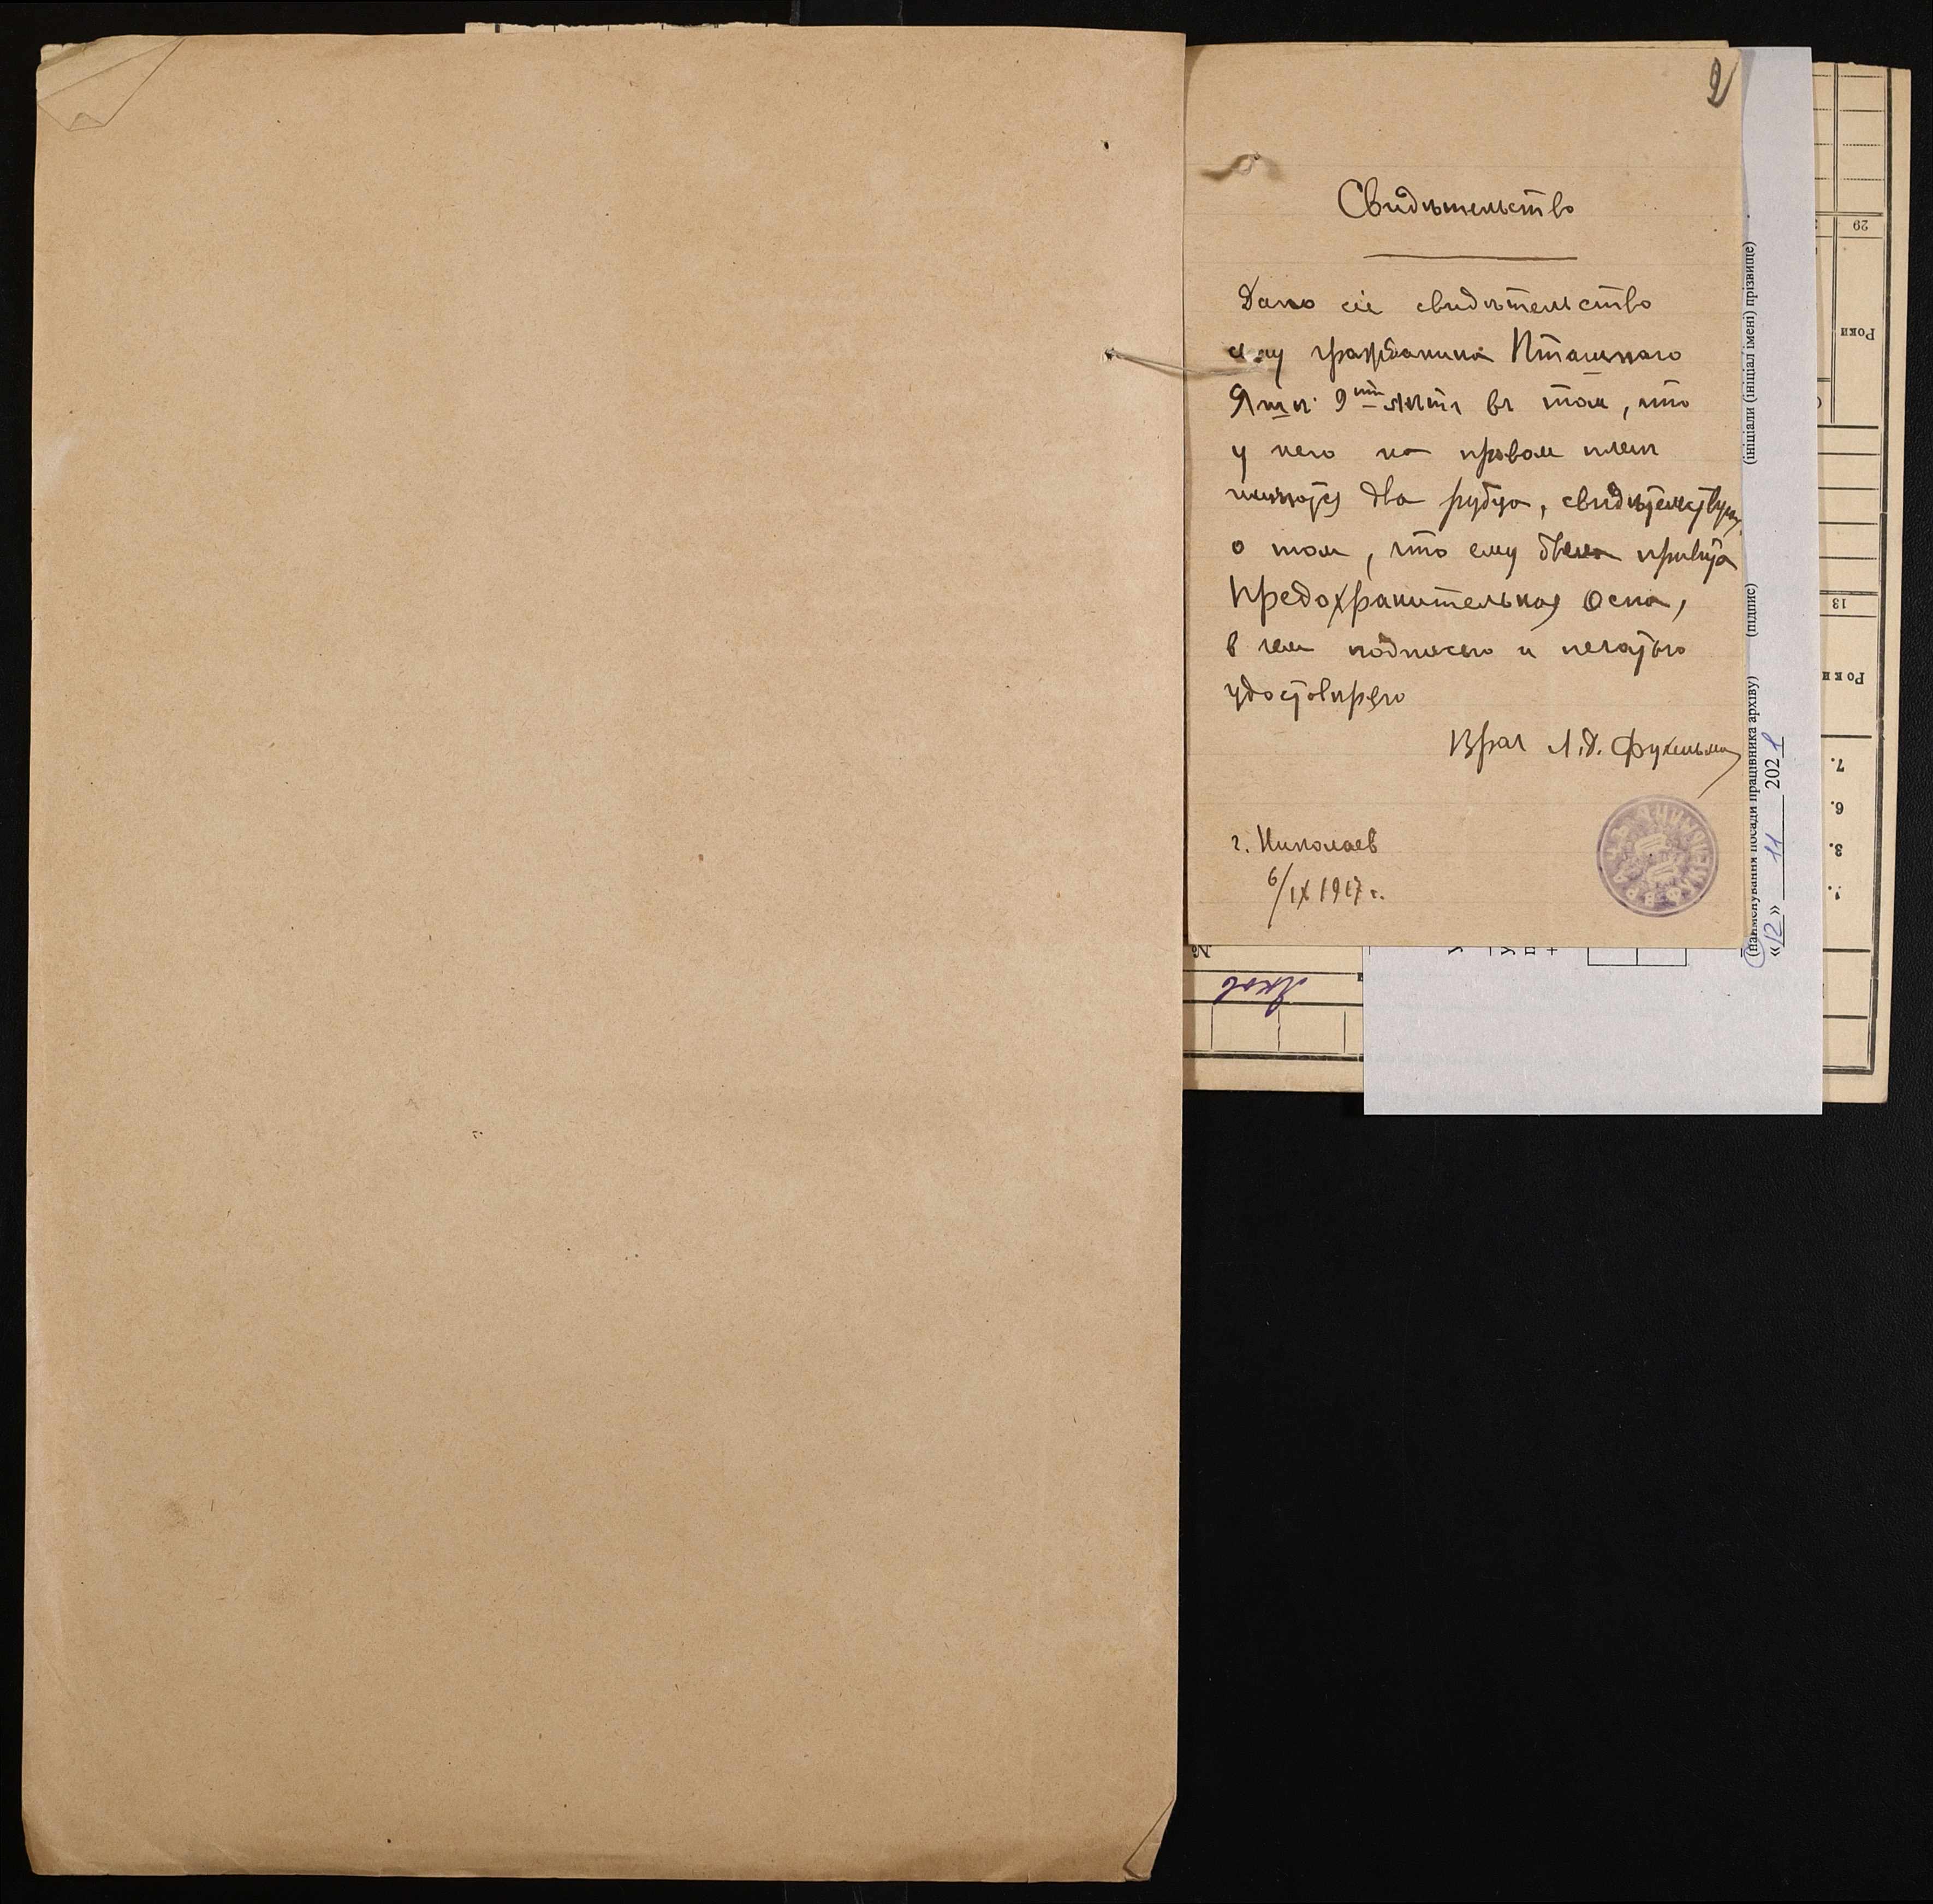 2
Свидѣтельство
Дано сіе свидѣтельство
сыну гражданина Пташнаго
Яши 9ти лѣтъ въ том, что
у него на правом плечѣ
имѣются два рубца, свидѣтельствующ
о том, что ему была привита
предохранительная оспа,
в чем подписью и печатью
удостовѣряю
Врач Л.Д. Фукельман
г. Николаев
6/IX 1917 г.
(найменування посади працівника архіву) (підпис) (ініціали (ініціал імені) прізвище)
«12» 11 2021
Яков
№
29
Роки
13
Роки
7.
6.
3.